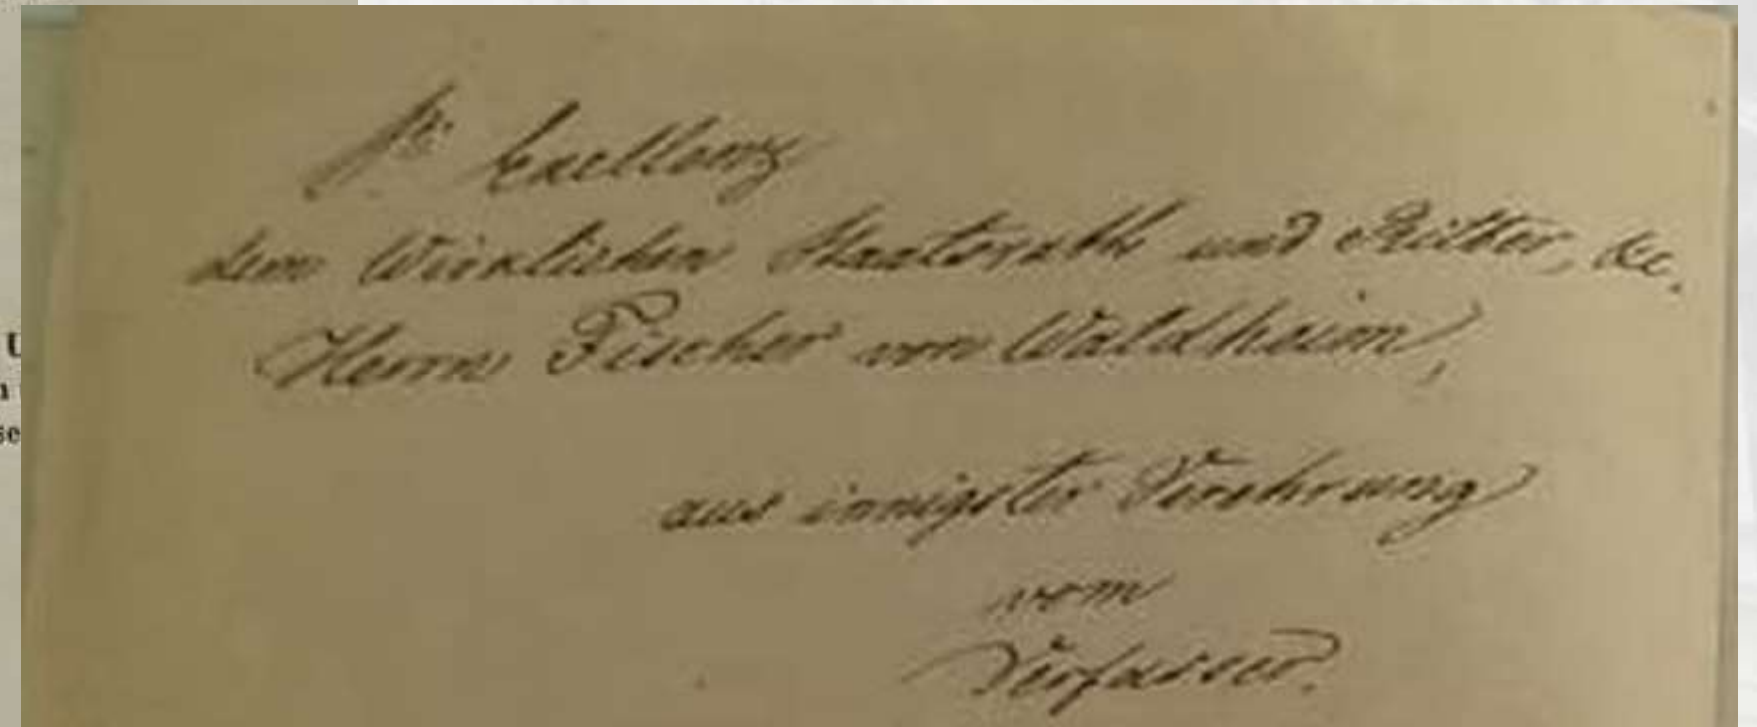 Sr Exellenz
dem Wirklichen Staatsrath und Ritter, &c.
Herrn Fischer von Waldheim,
aus innigster Verehrung
vom
Verfasser.